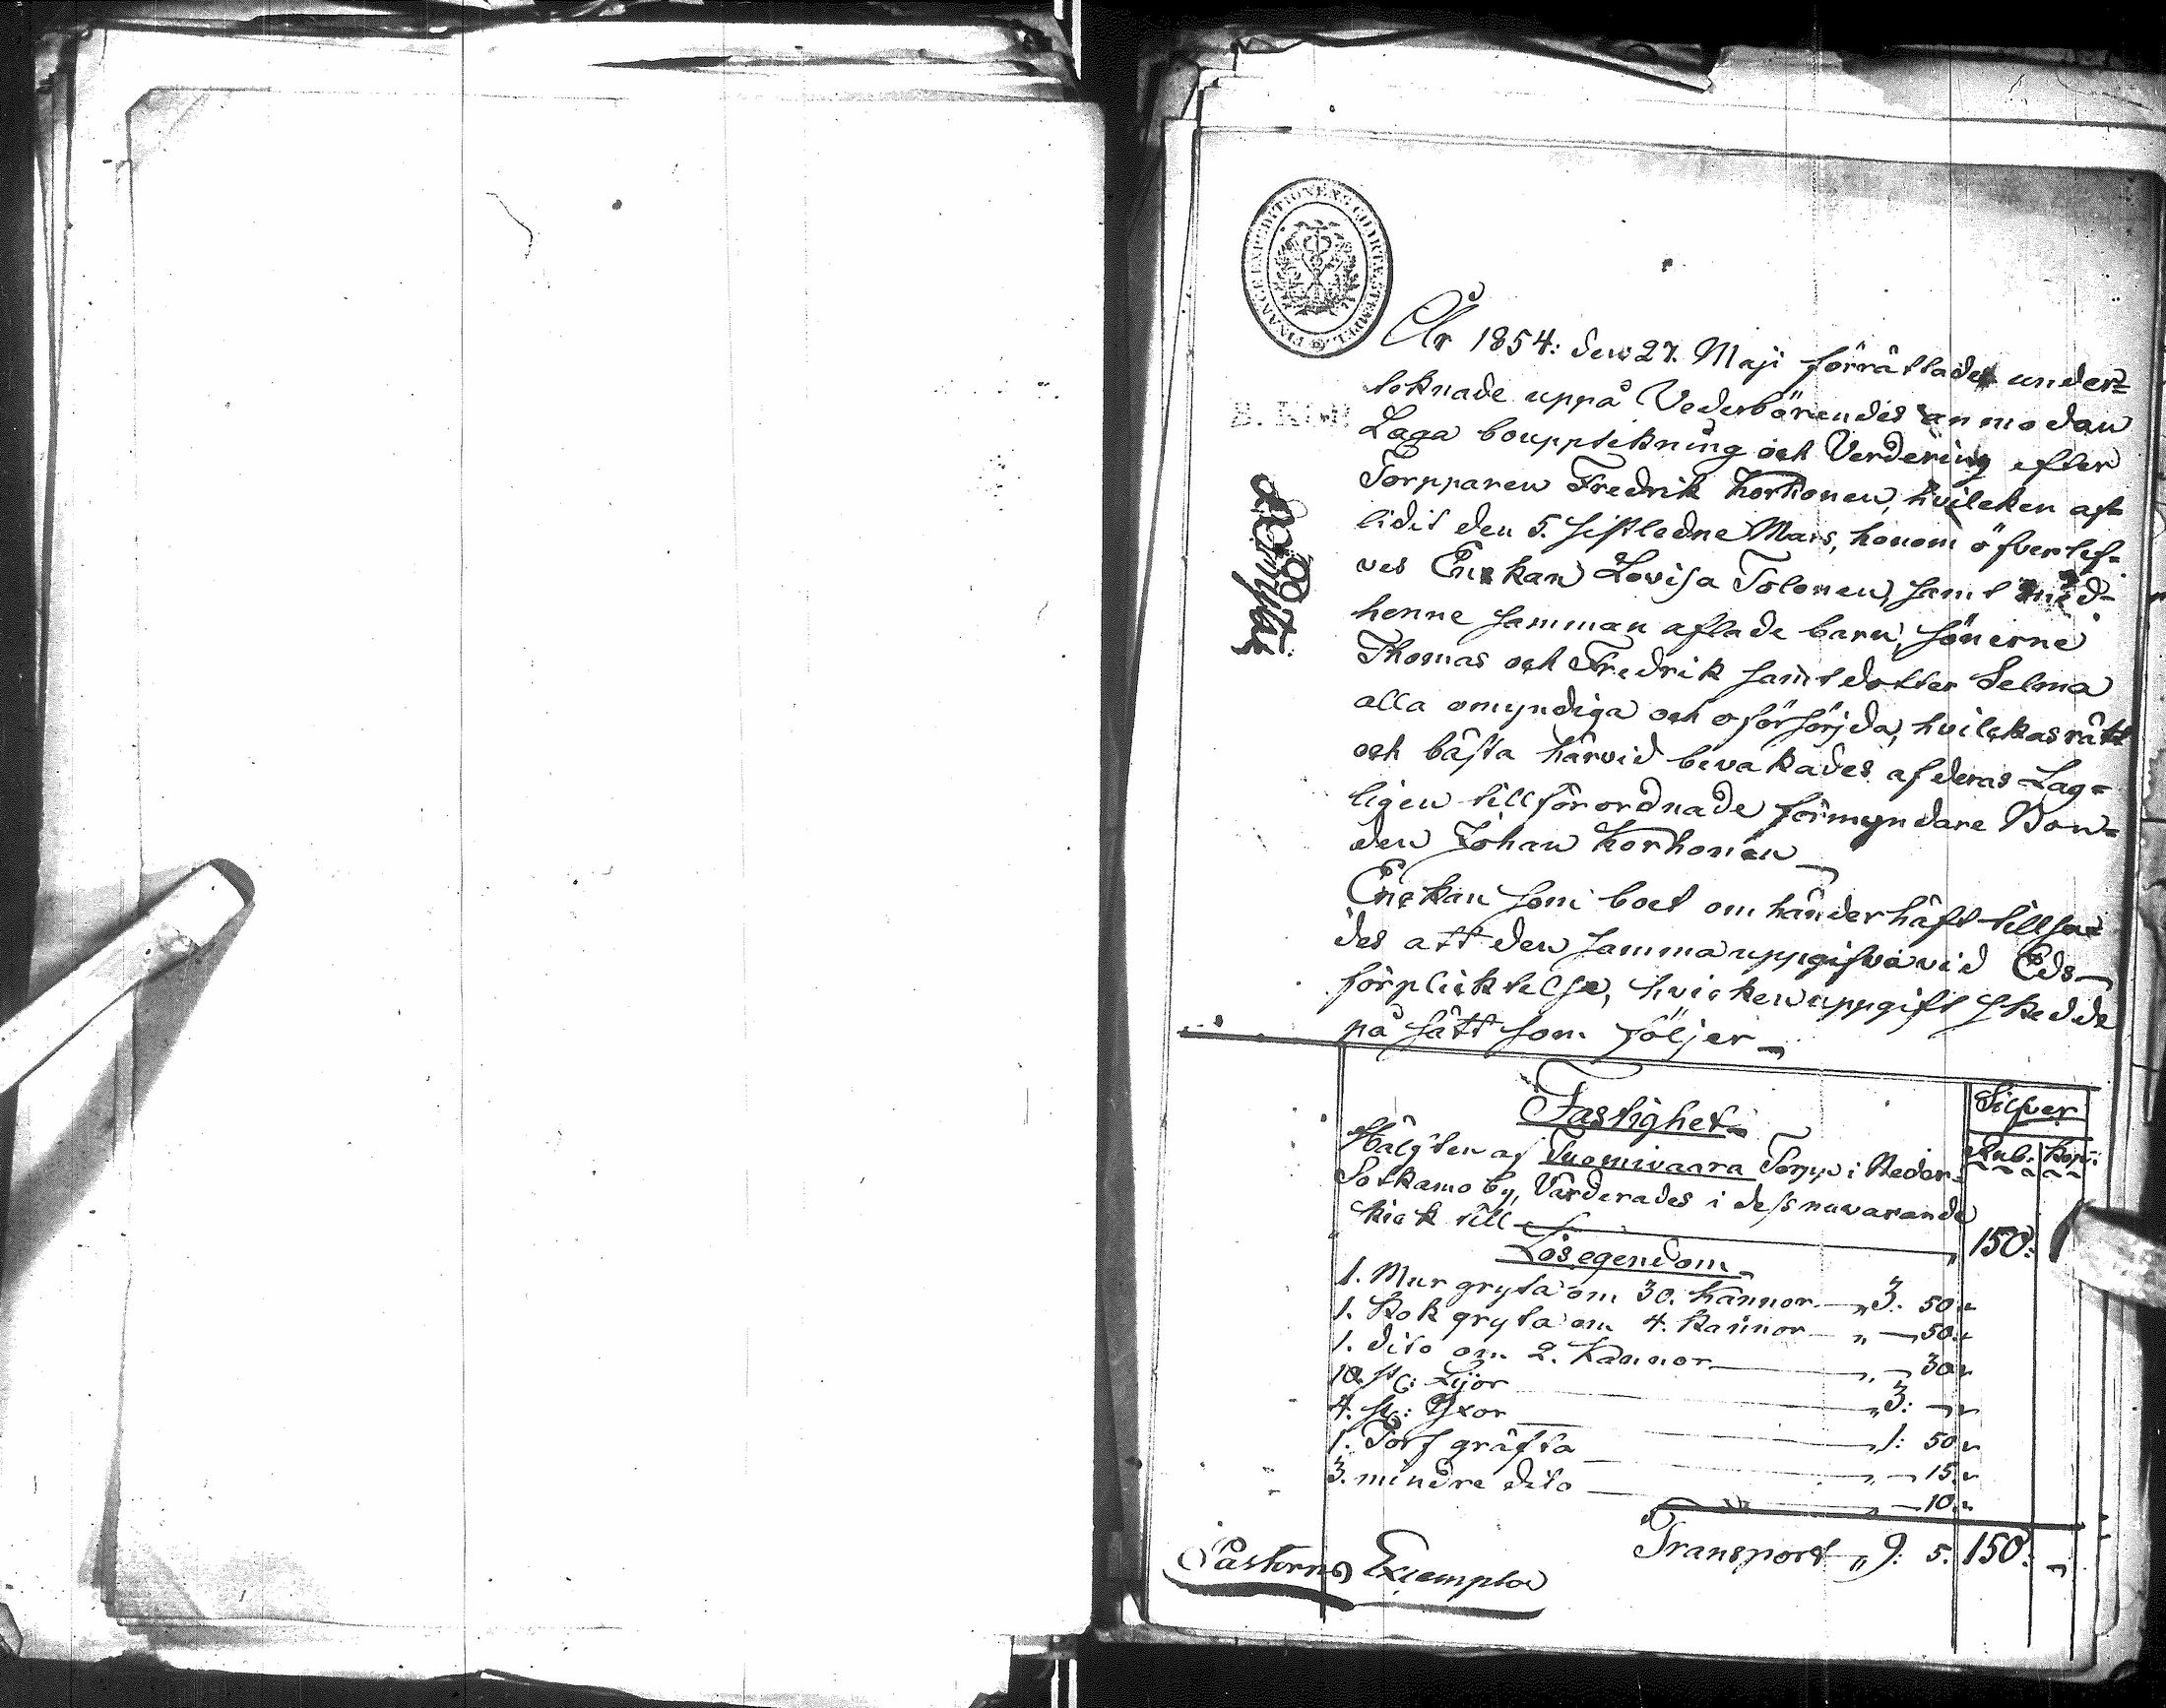 FINANCE EXPEDITIONENS CHARTÆ STEMPEL
År 1854: den 27. Maji förrättades under=
teknade uppå Vederbörendes anmodan
Laga boupptekning och Verdering efter
Torpparen Fredrik Korhonen, hvileken af=
lidit den 5. sistledne Mars, honom öfverlef=
ves Enckan Lovisa Tolonen, samt med
henne samman aflade barn, sönerne
Thomas och Fredrik samt dotter Selma
alla omyndiga och oförsörjda, hvilckas rätt
och bästa härvid bevakades af deras Lag=
ligen tillförordnade förmyndare Bon=
den Johan Korhonen
Enckan som boet om händer häft tillsa=
des att den samma uppgifva vid Eds
förplicktelse, hvicken uppgift skedde
på sätt som följer
Silfver
Rub: Kop:
Fastighet
Hälften af Tuomivaara Torpp i Neder=
Sotkamo by, Värderades i dess nuvarande
skick till 150:
Lösegendom
1. Mur gryta om 30. Kannor " 3. 50
1. Kok gryta om 4. Kannor " 50
1. dito om 2. Kannor 30
10. st: Lijor " 3:
4. st: Yxor 1: 50
1. Torf gräfta 15
3. mindre dito 10
Transport " 9: 5. 150:
Pastorns Exemplar